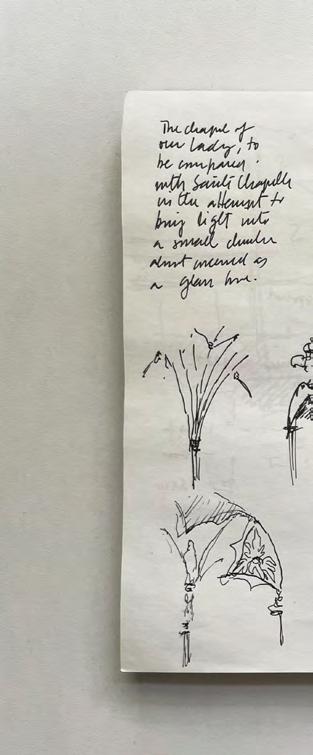 The chapel of
our Lady, to
be compared
with Sainte Chapelle
in the attempt to
bring light into
a small
almost conceived as
a glass box.